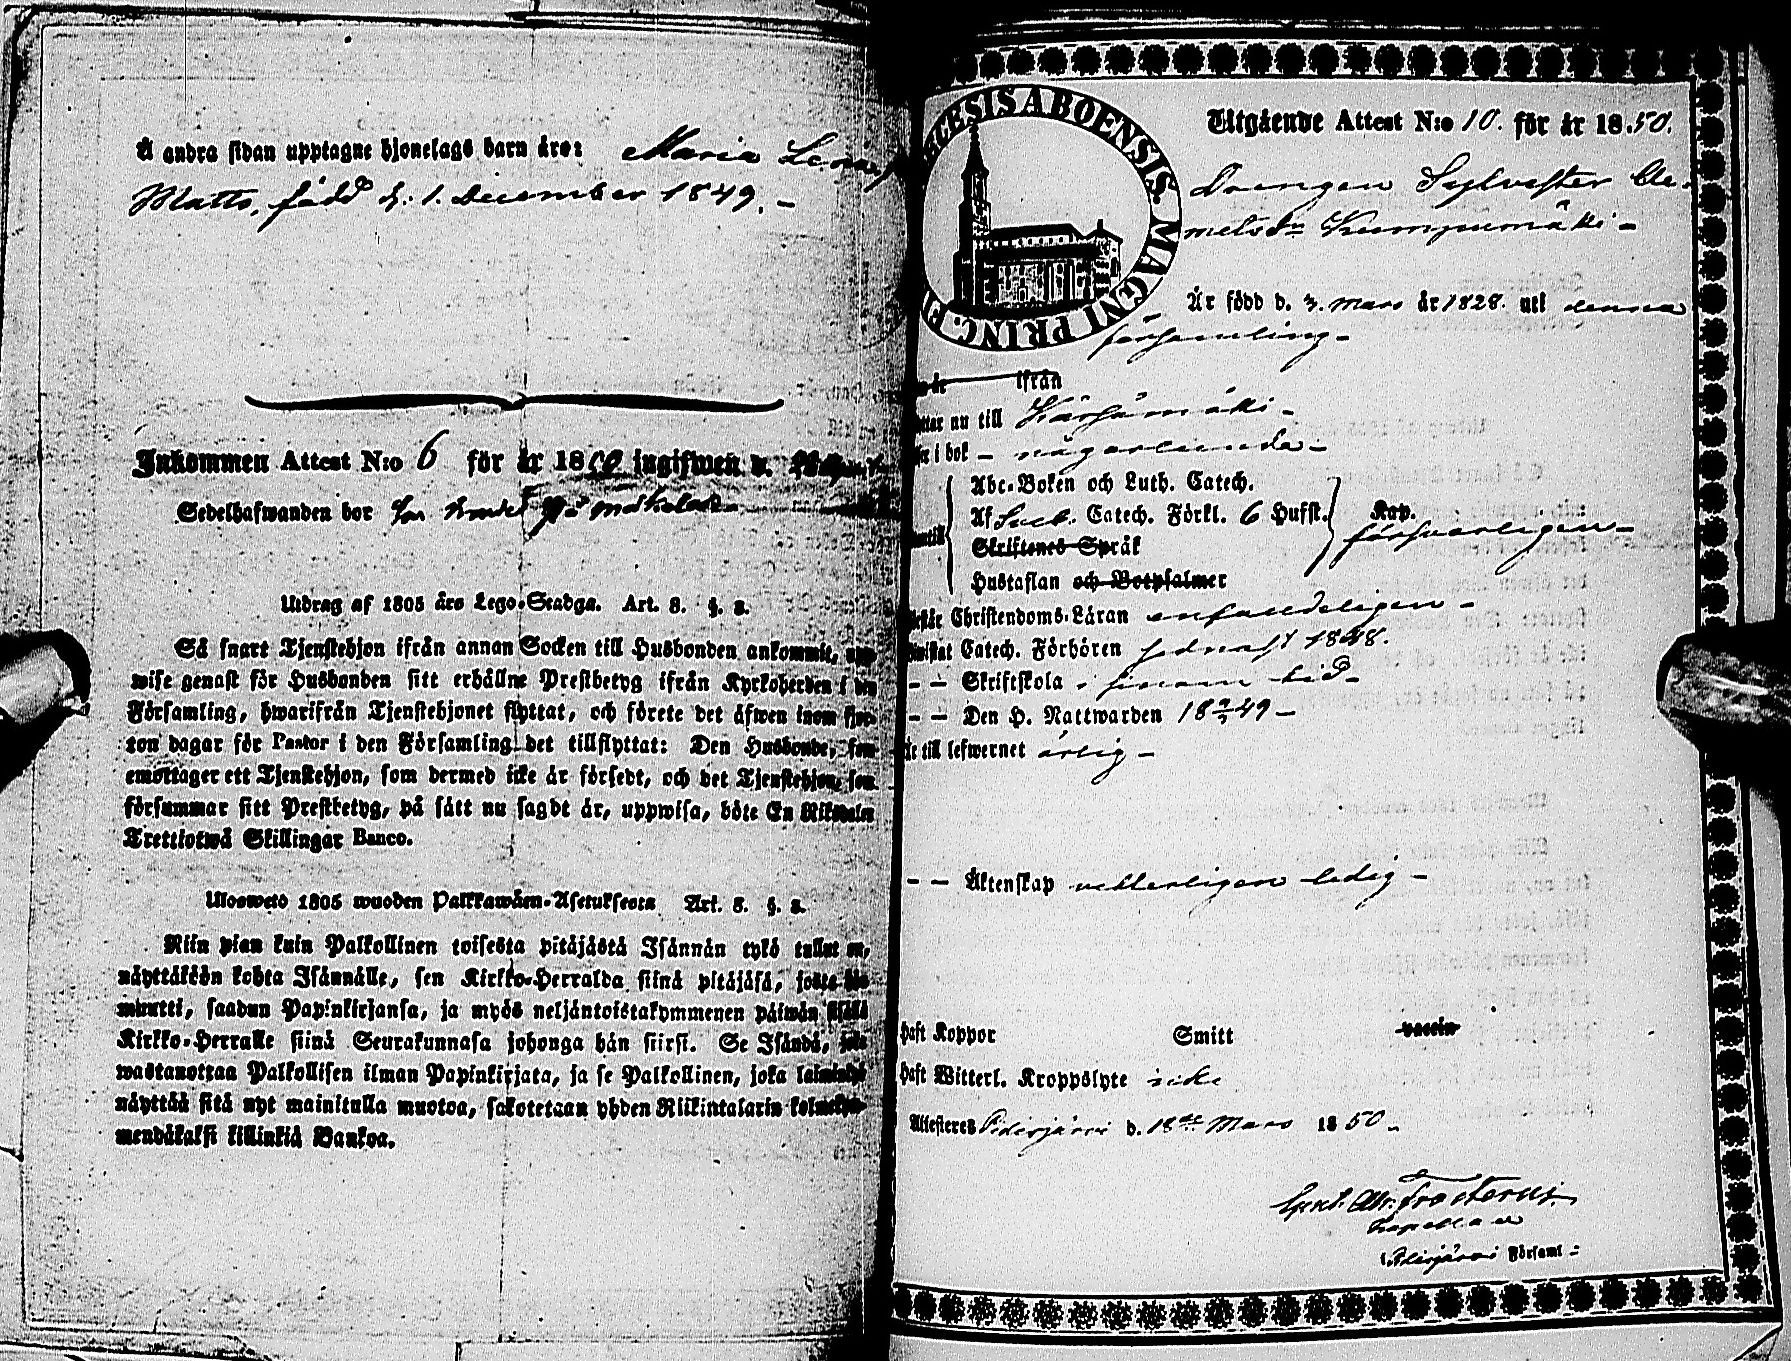 Å andra sidan upptagne hjonelags barn äro: Maria Lena,
Matts, född d. 1. December 1849. -
Inkommen Attest N:o 6 för år 18 ingifwen d.
Sedelhafwanden bor på
Utdrag af 1805 års Lego-Stadga. Art. 8. §. 2.
Så snart Tjenstehjon ifrån annan Socken till Husbonden ankommit, upp-
wise genast för Husbonden sitt erhållne Prestbetyg ifrån Kyrkoherden i den
Församling, hwarifrån Tjenstehjonet flyttat, och förete det äfwen inom fjor-
ton dagar för Pastor i den Församling det tillflyttat: Den Husbonde, som
emottager ett Tjenstehjon, som dermed icke är försedt, och det Tjenstehjon, som
försummar sitt Prestbetyg, på sätt nu sagdt är, uppwisa, böte En Riksdaler
Trettiotwå Skillingar Banco.
Ulosweto 1805 wuoden Palkkawäen-Asetuksesta Art. 8. §. 2.
Niin pian kuin Palkollinen toisesta pitäjästä Isännän tykö tullut on,
näyttäköön kohta Isännälle, sen Kirkko-Herralda siinä pitäjäsä, josta
muutti, saadun Papinkirjansa, ja myös neljäntoistakymmenen päiwän sisällä
Kirkko-Herralle siinä Seurakunnasa johonga hän siirsi. Se Isändä, joka
wastanottaa Palkollisen ilman Papinkirjata, ja se Palkollinen, joka laiminlyö
näyttää sitä nyt mainitulla muotoa, sakotetaan yhden Riikintalarin kolmekym-
mendäkaksi killinkiä Bankoa.
ECCLESIS ABOENSIS MAGNI PRINC. FI
Utgående Attest N:o 10. för år 1850.
Drengen Sylvester Cle-
metsSn Kumpumäki -
Är född d. 3. Mars år 1828. uti denna
församling -
ifrån
ttar nu till Kärsämäki -
er i bok - någorlunda -
Abc-Boken och Luth. Catech.
Af Sveb. Catech. Förkl. 6 Hufst. Kap.
försvarligen -
Skriftenes Språk
Hustaflan och Botpsalmer
rstår Christendoms-Läran enfaldeligen -
wistat Catech. Förhören sednast 1848.
- - Skriftskola i sinom tid -
- - Den H. Nattwarden 18 49 -
Är till lefwernet ärlig -
- - Äktenskap vetterligen ledig -
Haft Koppor Smitt vaccin
Haft Witterl. Kroppslyte icke
Attesteres Pidisjärvi d. 18de Mars 1850 -
Frosterus.
Kapellan
i Pidisjärvi Församl: